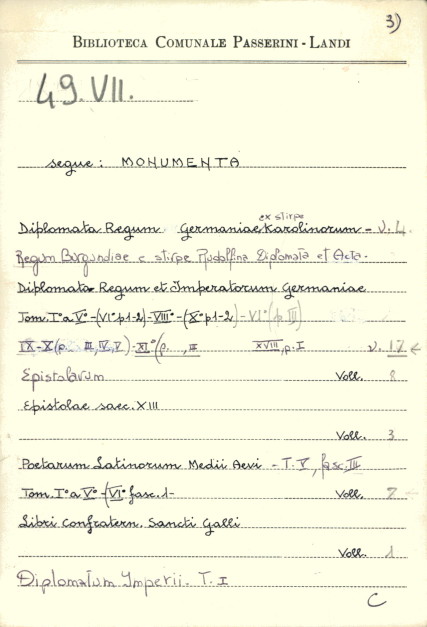 3)
BIBLIOTECA COMUNALE PASSERINI - LANDI
49.VII.
segue: MONUMENTA
ex stirpe
Diplomata Regum Germaniae Karolinorum - V. 4.
Regum Burgundiae e stirpe Rudolfina Diplomata et Acta.
Diplomata Regum et Imperatorum Germaniae
Tom. I° a V° - (VI° p1-2) - VIII° - (X° p1-2) - VI° (p III)
IX - X (p. III, IV, V) - XI° (p. , III XVIII, p. I V. 17 ←
Epistolarum Voll. 8
Epistolae saec. XIII
Voll. 3
Poetarum Latinorum Medii Aevi - T. V, fasc. III
Tom. I° a V° - (VI° fasc. 1- Voll. 7
Libri Confratern. Sancti Galli
Voll. 1
Diplomatum Imperii. T. I
C